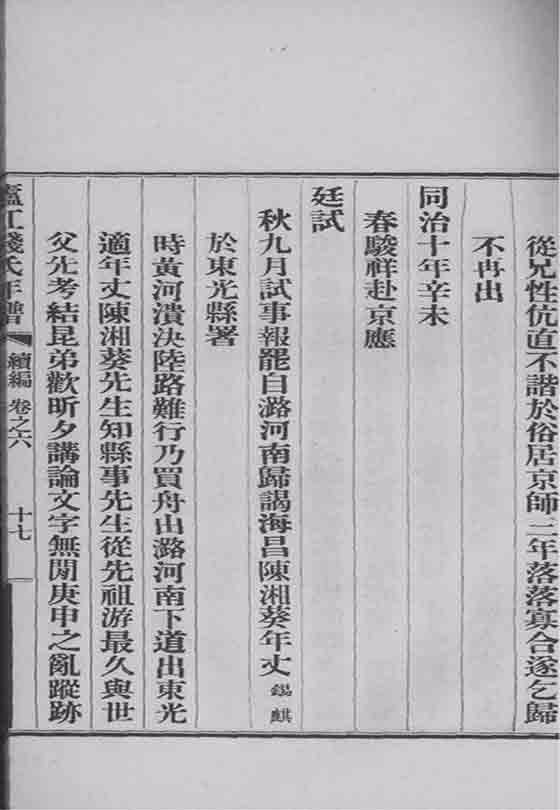 從兄性伉直不諧於俗居京師二年落落寡合遂乞歸
不再出
同治十年辛未
春駿祥赴京應
廷試
秋九月試事報罷自潞河南歸謁海昌陳湘葵年丈錫麒
於東光縣署
時黃河潰決陸路難行乃買舟由潞河南下道出東光
適年丈陳湘葵先生知縣事先生從先祖游最久與世
父先考結昆弟歡昕夕講論文字無閒庚申之亂蹤跡
廬江錢氏年譜 續編 卷之六 十七